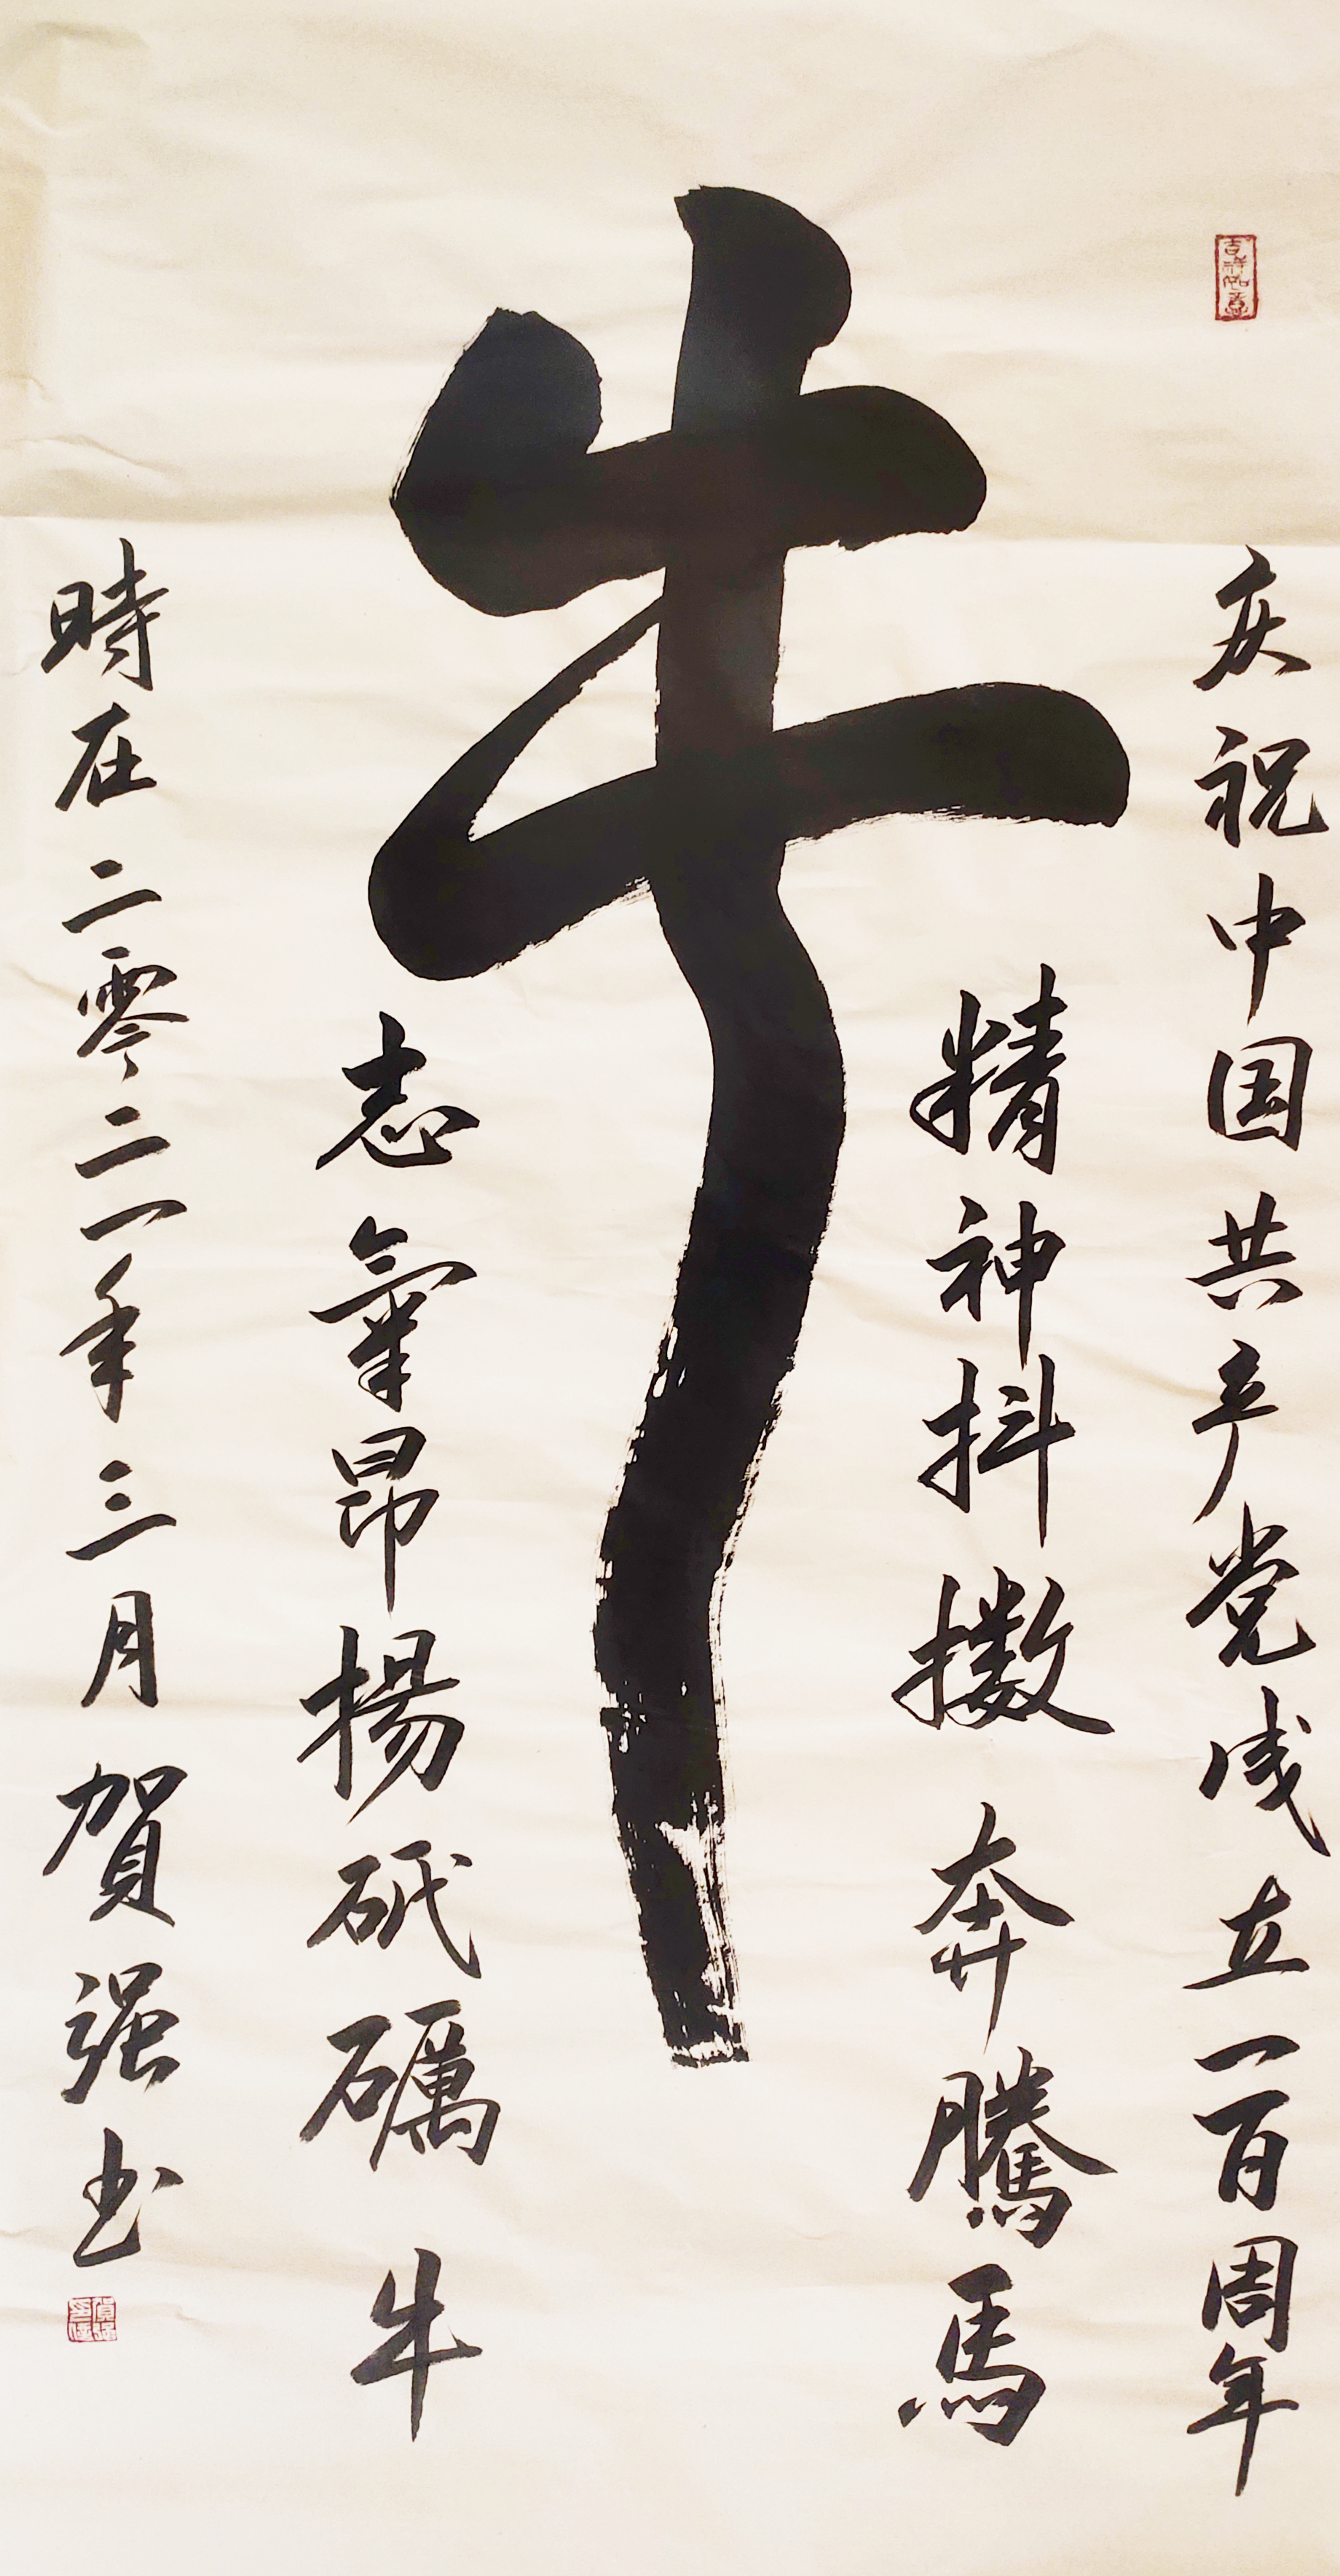 吉祥如意
庆祝中国共产党成立一百周年
精神抖擻奔騰馬
牛
志氣昂揚砥礪牛
時在二零二一年三月賀强书